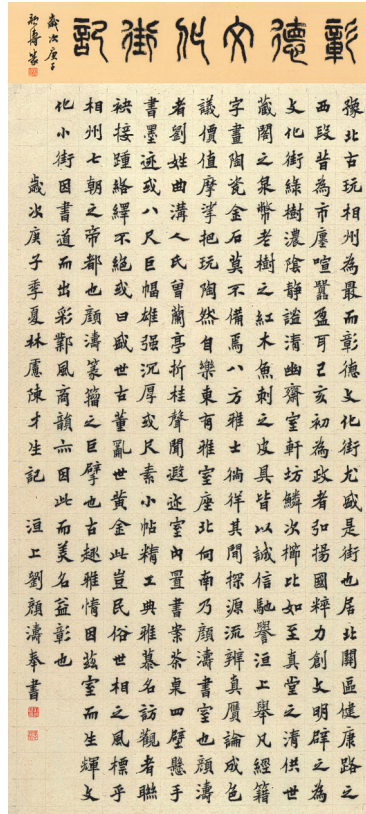 彰德文化街記
歲次庚子
顏濤篆
豫北古玩相州為最而彰德文化街尤盛是街也居北關區健康路之
西段昔為市廛喧囂盈耳己亥初為政者弘揚國粹力創文明辟之為
文化街綠樹濃陰靜謐清幽齋室軒坊鱗次櫛比如至真堂之清供世
藏閣之泉幣老樹之紅木魚刺之皮具皆以誠信馳譽洹上舉凡經籍
字畫陶瓷金石莫不備焉八方雅士徜徉其間探源流辨真贋論成色
議價值摩挲把玩陶然自樂東有雅室座北向南乃顏濤書室也顏濤
者劉姓曲溝人氏曾蘭亭折桂聲聞遐迩室內置書案茶桌四壁懸手
書墨迹或八尺巨幅雄强沉厚或尺素小帖精工典雅慕名訪觀者聯
袂接踵絡繹不絕或曰盛世古董亂世黃金此豈民俗世相之風標乎
相州七朝之帝都也顏濤篆籀之巨擘也古趣雅情因茲室而生輝文
化小街因書道而出彩鄴風商韻亦因此而美名益彰也
歲次庚子季夏林慮陳才生記 洹上劉顏濤奉書